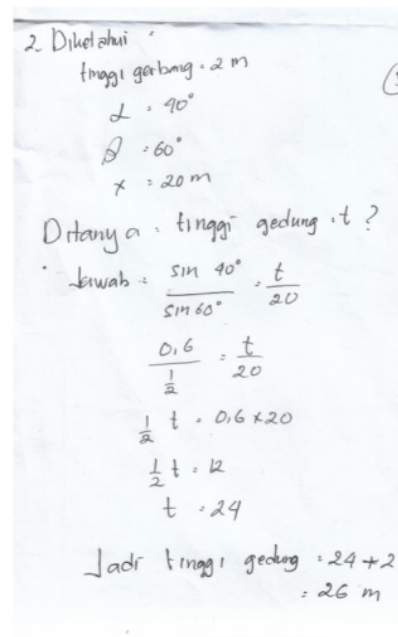 2. Diketahui :
tinggi gerbang = 2 m
α = 40°
β = 60°
x = 20 m
Ditanya : tinggi gedung : t ?
Jawab = sin 40° / sin 60° = t / 20
0,6 / 1/2 = t / 20
1/2 t = 0,6 x 20
1/2 t = 12
t = 24
Jadi tinggi gedung = 24 + 2
= 26 m